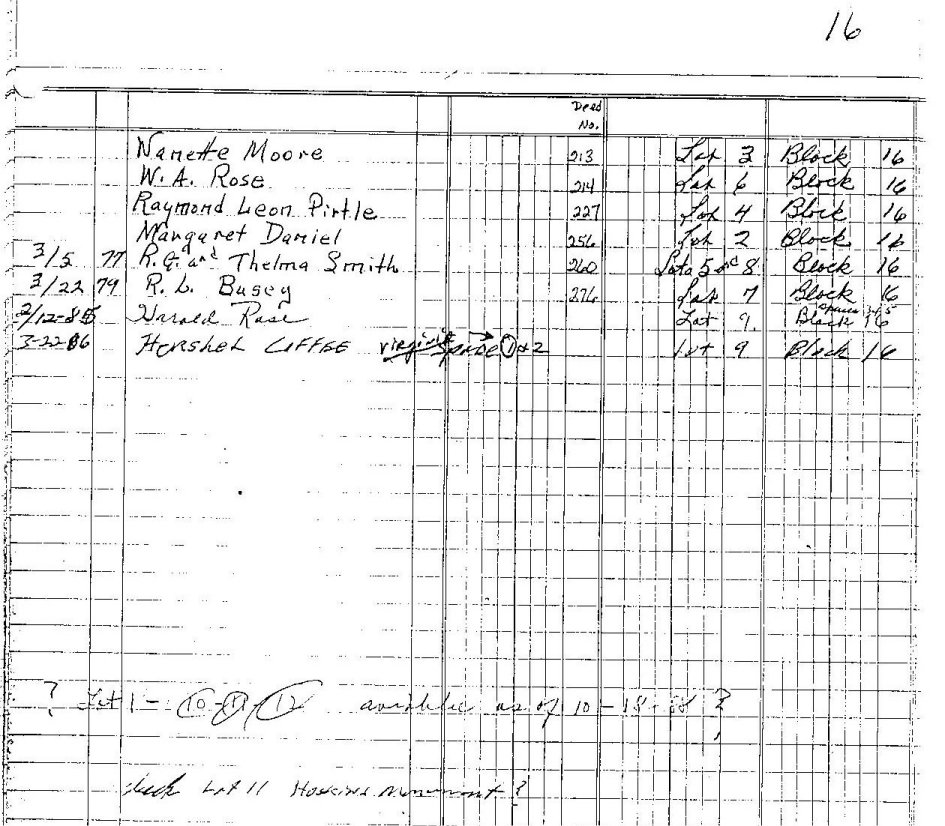 16
Deed
No.
Nanette Moore 213 Lot 3 Block 16
W. A. Rose 214 Lot 6 Block 16
Raymond Leon Pirtle 227 Lot 4 Block 16
Margaret Daniel 256 Lot 2 Block 16
3/5 77 R.G. and Thelma Smith 260 Lots 5 and 8 Block 16
3/22 79 R. L. Busey 276 Lot 7 Block 16
2/12-85 Harold Rose Lot 9. Block 16
3-22 86 HERSHEL Virginia SPACE 1 & 2 Lot 9 Block 16
? Lot 1 - 10 - 11, 12 available as of 10-18-88 ?
check Lot 11 Hoskins monument ?